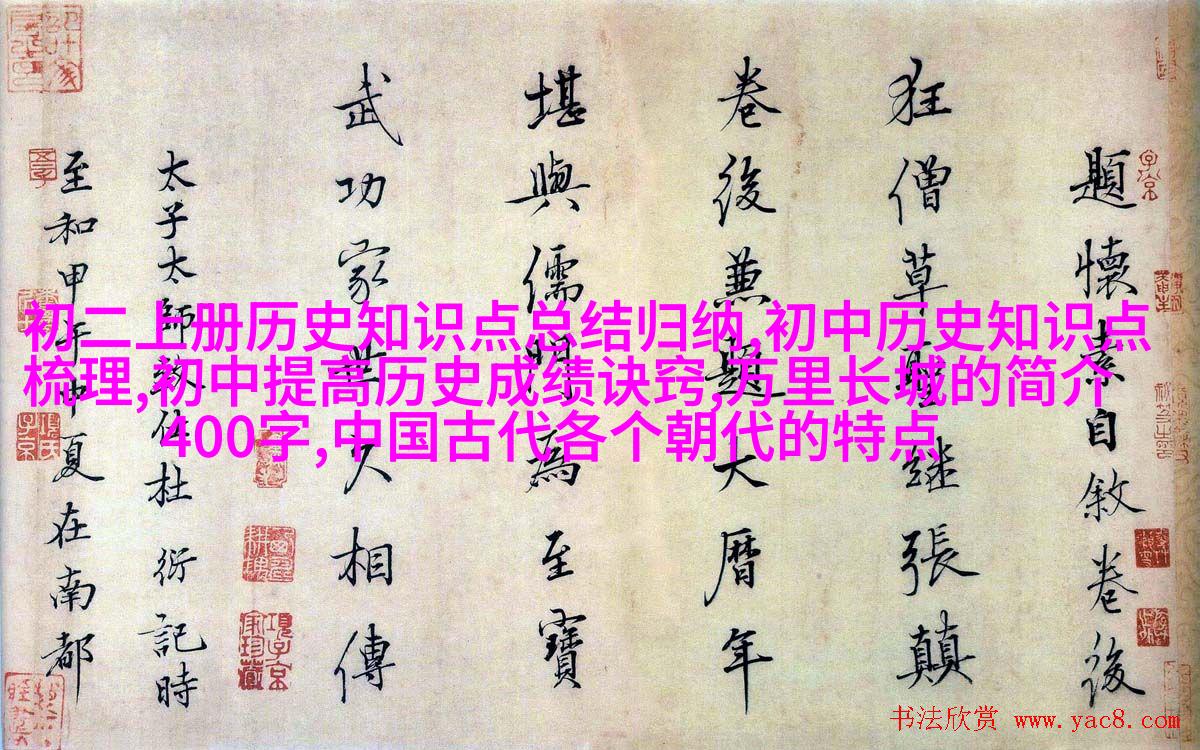 題懷素自敘卷後
狂僧草聖繼張顛
卷後兼題大曆年
堪與儒門為至寶
武功家世久相傳
太子太師致仕杜衍記時
至和甲午中夏在南都
初二上册历史知识点总结归纳,初中历史知识点
梳理,初中提高历史成绩诀窍,万里长城的简介
400字,中国古代各个朝代的特点
书法欣赏 www.yac8.com